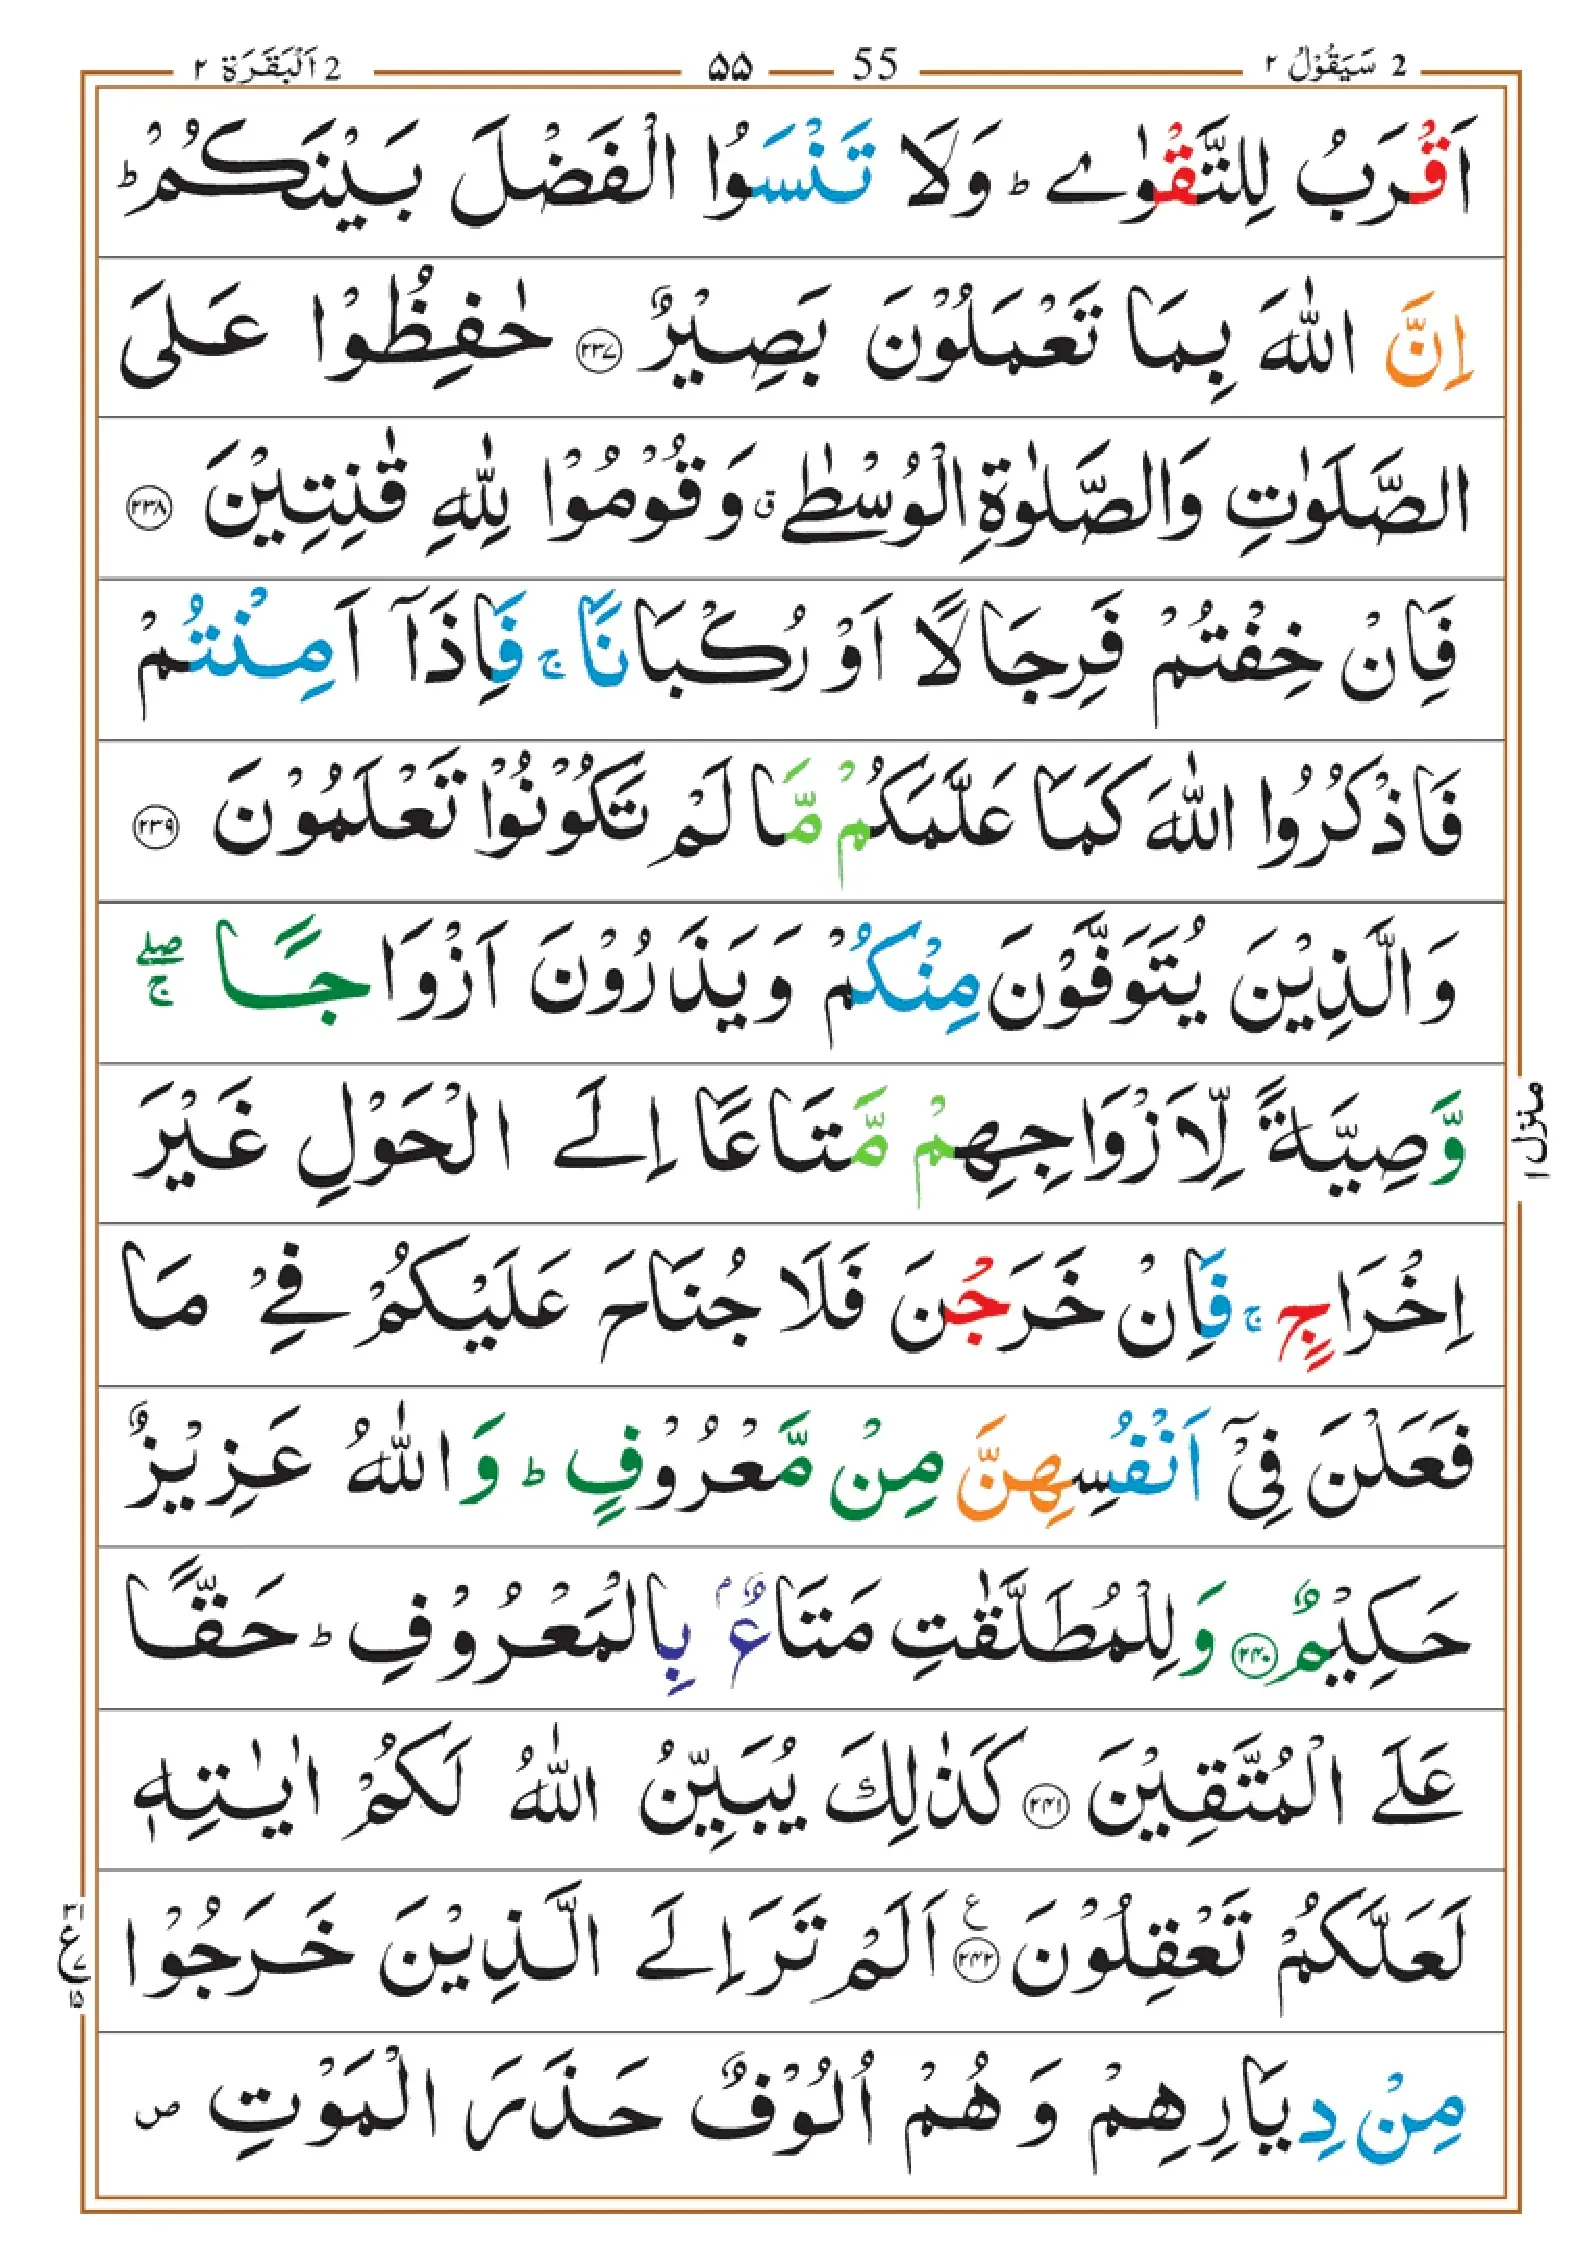 2 سَيَقُوْلُ ٢ 55 ۵۵ 2 اَلْبَقَرَة ٢
اَقْرَبُ لِلتَّقْوٰى ؕ وَلَا تَنْسَوُا الْفَضْلَ بَيْنَكُمْ ؕ
اِنَّ اللّٰهَ بِمَا تَعْمَلُوْنَ بَصِيْرٌ ﴿۲۳۷﴾ حٰفِظُوْا عَلَى
الصَّلَوٰتِ وَالصَّلٰوةِ الْوُسْطٰى ۗ وَقُوْمُوْا لِلّٰهِ قٰنِتِيْنَ ﴿۲۳۸﴾
فَاِنْ خِفْتُمْ فَرِجَالًا اَوْ رُكْبَانًا ۚ فَاِذَآ اَمِنْتُمْ
فَاذْكُرُوا اللّٰهَ كَمَا عَلَّمَكُمْ مَّا لَمْ تَكُوْنُوْا تَعْلَمُوْنَ ﴿۲۳۹﴾
وَالَّذِيْنَ يُتَوَفَّوْنَ مِنْكُمْ وَيَذَرُوْنَ اَزْوَاجًا ۖۚ
وَّصِيَّةً لِّاَزْوَاجِهِمْ مَّتَاعًا اِلَى الْحَوْلِ غَيْرَ
اِخْرَاجٍ ۚ فَاِنْ خَرَجْنَ فَلَا جُنَاحَ عَلَيْكُمْ فِيْ مَا
فَعَلْنَ فِيْٓ اَنْفُسِهِنَّ مِنْ مَّعْرُوْفٍ ؕ وَاللّٰهُ عَزِيْزٌ
حَكِيْمٌ ﴿۲۴۰﴾ وَلِلْمُطَلَّقٰتِ مَتَاعٌ ۢ بِالْمَعْرُوْفِ ؕ حَقًّا
عَلَى الْمُتَّقِيْنَ ﴿۲۴۱﴾ كَذٰلِكَ يُبَيِّنُ اللّٰهُ لَكُمْ اٰيٰتِهٖ
لَعَلَّكُمْ تَعْقِلُوْنَ ﴿۲۴۲﴾ ع اَلَمْ تَرَ اِلَى الَّذِيْنَ خَرَجُوْا
مِنْ دِيَارِهِمْ وَهُمْ اُلُوْفٌ حَذَرَ الْمَوْتِ ص
منزل ۱
۳۱
ع ۷
۱۵